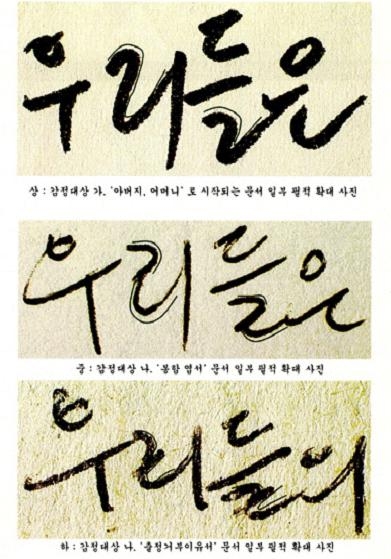 우리들은
상 : 감정대상 가. '아버지, 어머니' 로 시작되는 문서 일부 필적 확대 사진
우리들은
중 : 감정대상 나. '봉함 엽서' 문서 일부 필적 확대 사진
우리들의
하 : 감정대상 나. '출정거부이유서' 문서 일부 필적 확대 사진